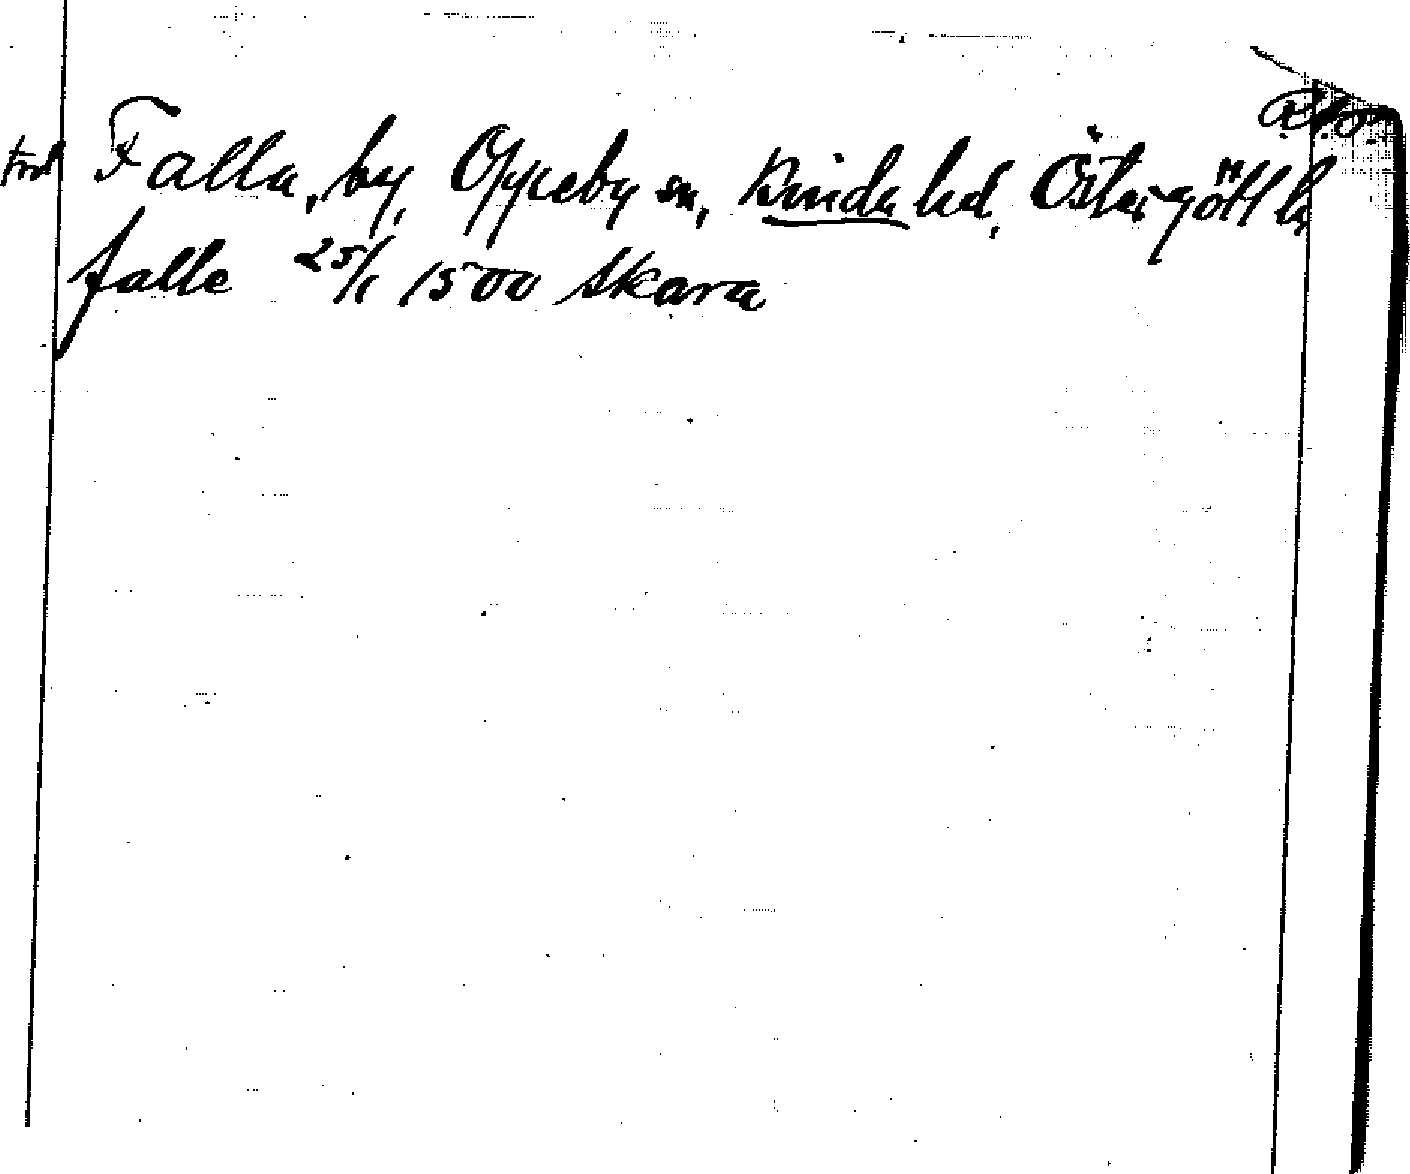 Falla, by, Oppeby sn, Kinda hd, Östergötl l.
falle 25/1 1500 Skara